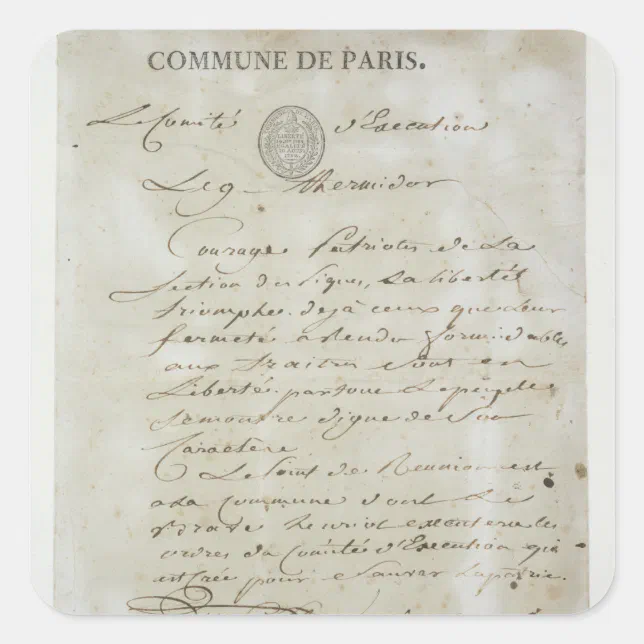 COMMUNE DE PARIS.
Le Comité d'Execution
Le 9 thermidor
Courage Patriotes de La
Section des Piques, La liberté
triomphe. deja ceux que Leur
fermeté a rendu formidables
aux traitres sont en
Liberté. partout Le peuple
se montre digne de son
Caractère
Le Point de Reunion est
a La Commune dont Le
brave henriot executera les
ordres du Comité d'Execution qui
est créé pour Sauver La patrie.